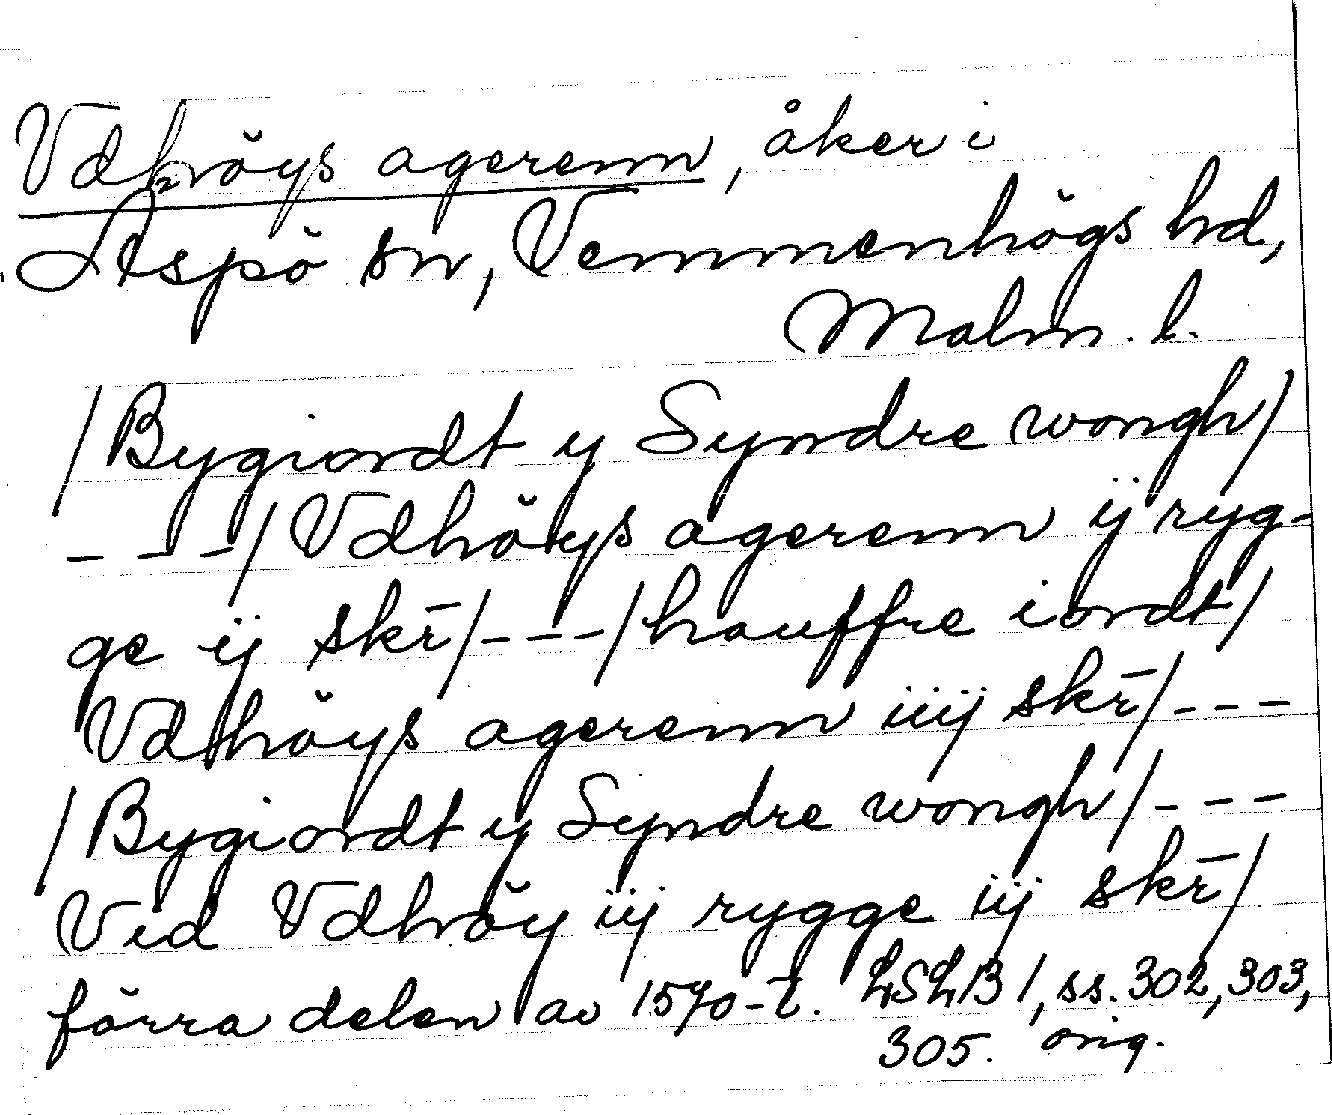 Vdhöys agerenn, åker i
Äspö sn, Vemmenhögs hd,
Malm. l.
/Bygiordt y Syndre wongh/
---/Vdhöys agerenn ij ryg-
ge ij skr̄/---/hauffre iordt/
Vdhöys agerenn iiij skr̄/---
/Bygiordt y Syndre wongh/---
Vid Vdhöy iij rygge iij skr̄/
förra delen av 1570-t. LSLB 1, ss. 302, 303,
305. orig.